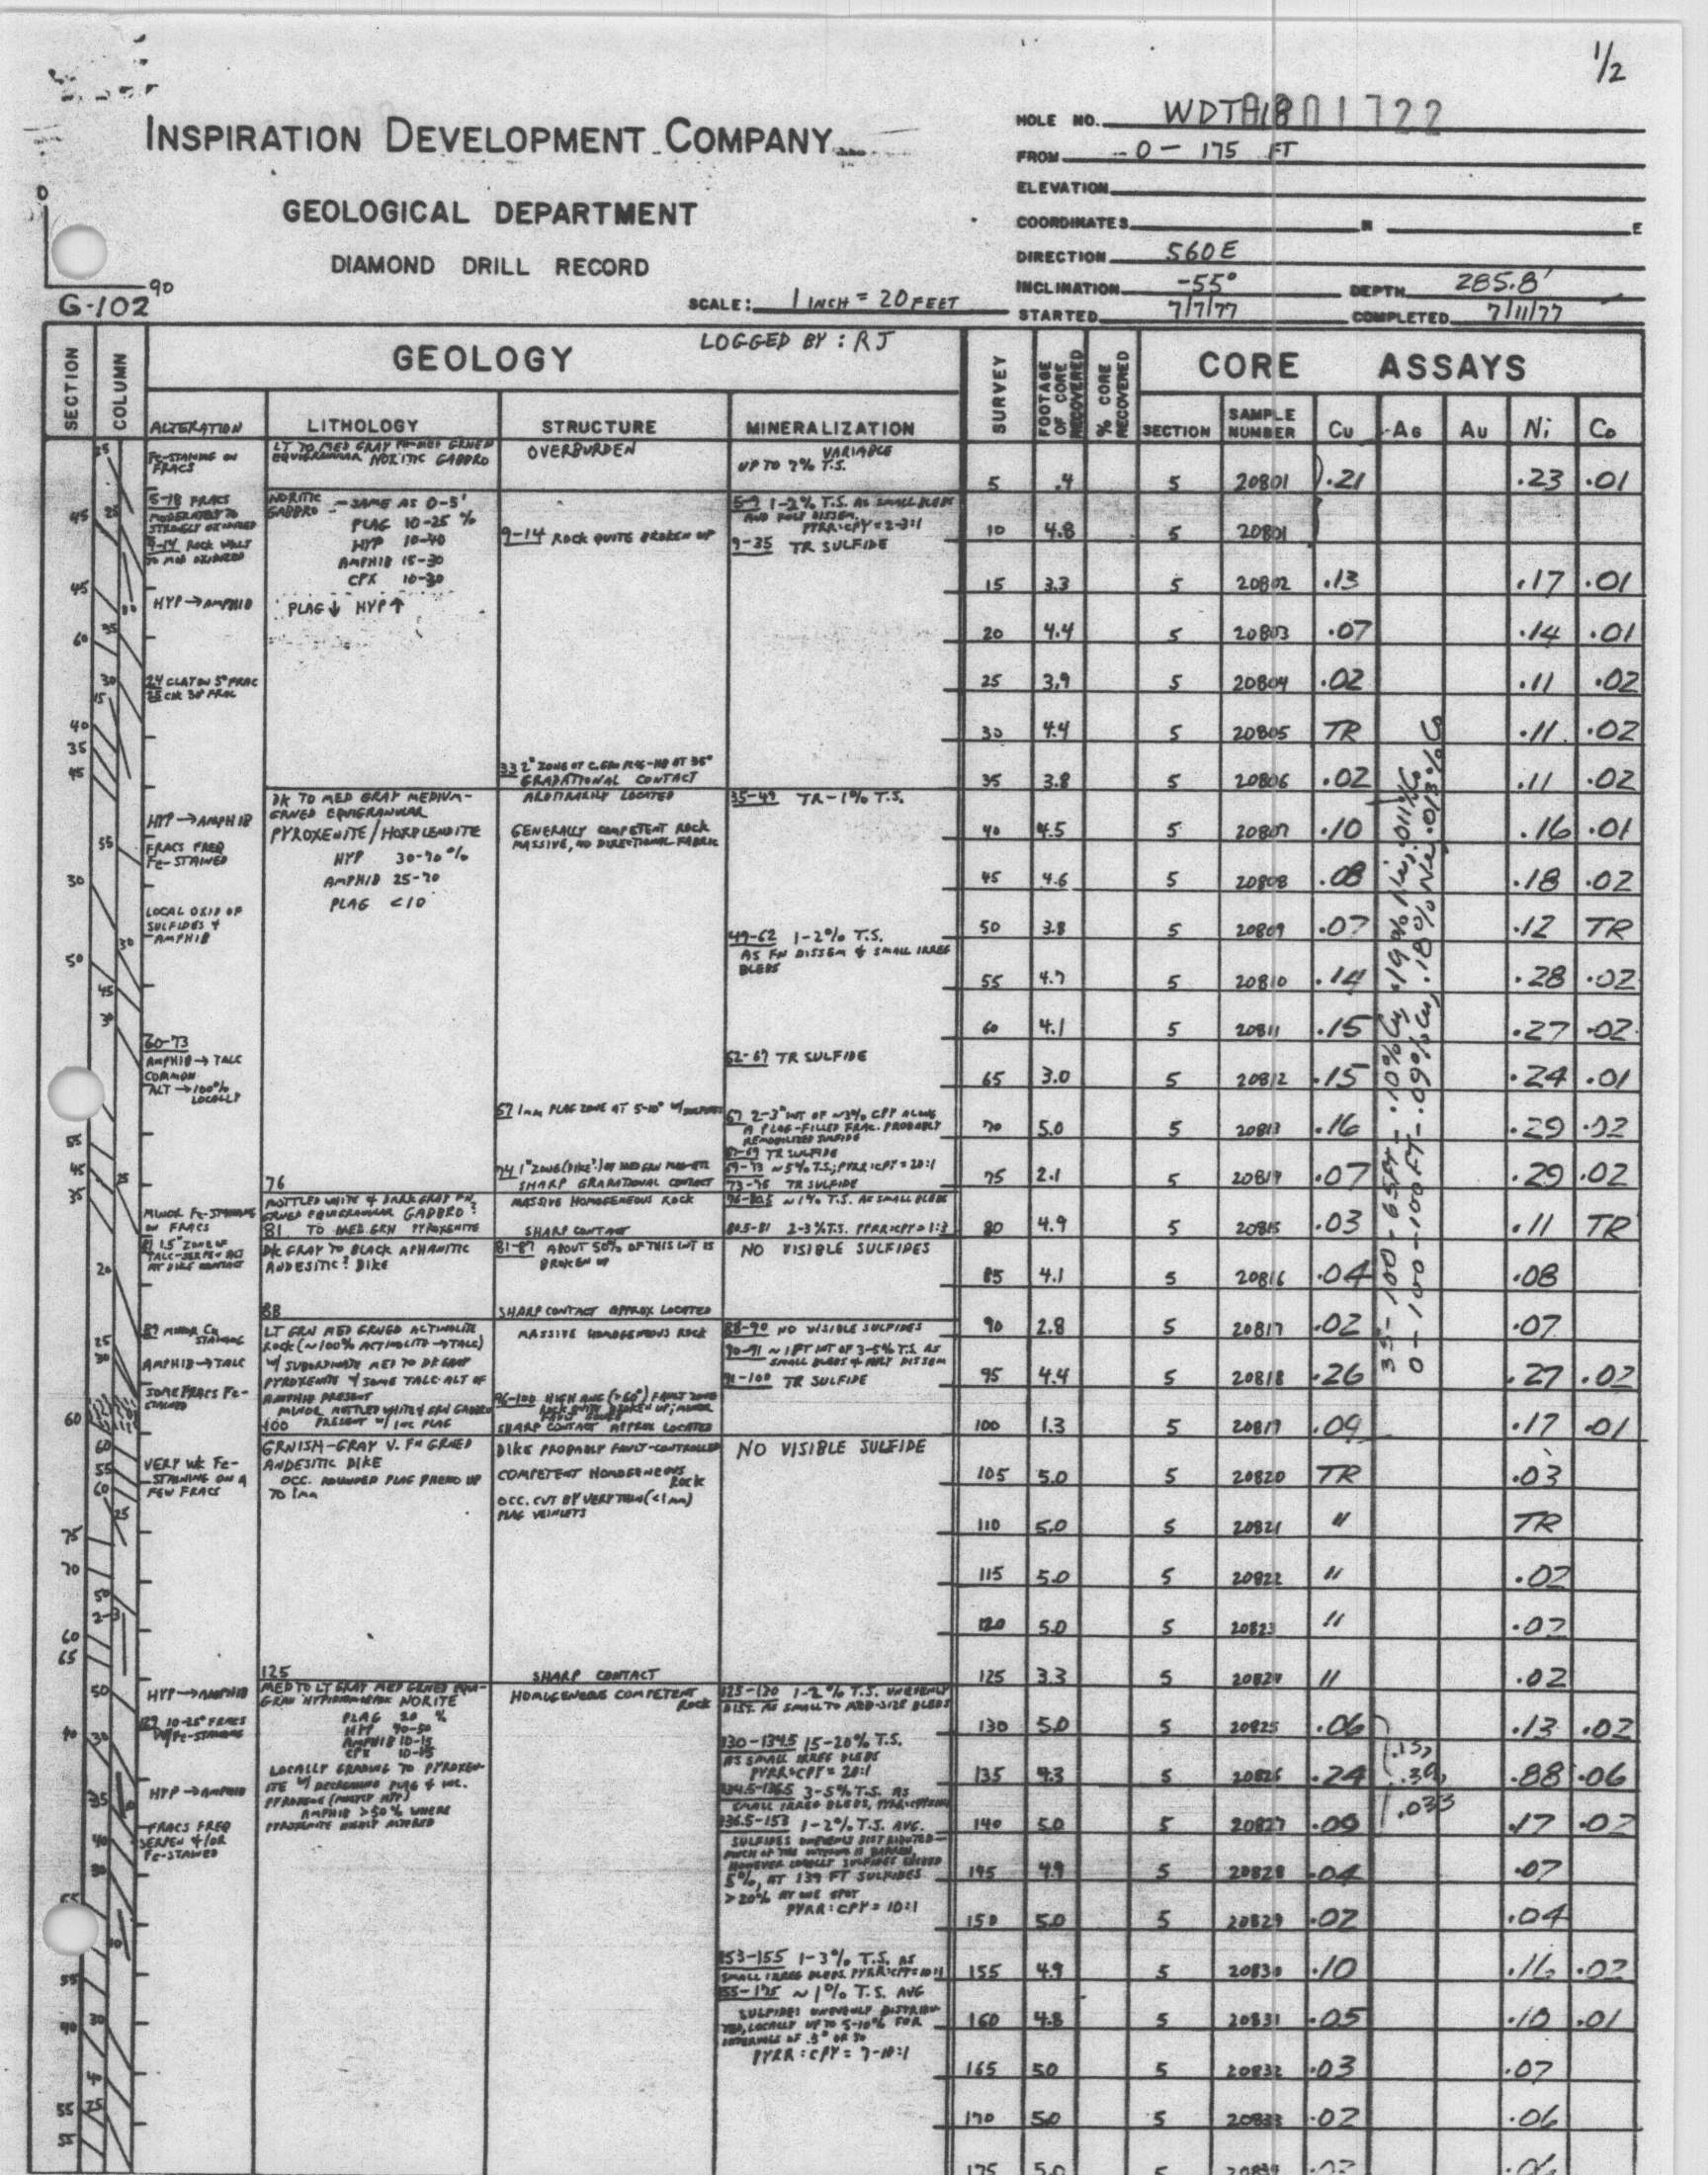 1/2
INSPIRATION DEVELOPMENT COMPANY
GEOLOGICAL DEPARTMENT
DIAMOND DRILL RECORD
0
90
G-102
SCALE: 1 INCH = 20 FEET
HOLE NO. WDTA18 01722
FROM 0 - 175 FT
ELEVATION
COORDINATES N E
DIRECTION S60E
INCLINATION -55° DEPTH 285.8'
STARTED 7/7/77 COMPLETED 7/11/77
SECTION COLUMN GEOLOGY LOGGED BY: RJ
SURVEY FOOTAGE OF CORE RECOVERED % CORE RECOVERED CORE ASSAYS
ALTERATION LITHOLOGY STRUCTURE MINERALIZATION
SECTION SAMPLE NUMBER Cu AG AU Ni Co
Fe-STAINING ON FRACS
LT TO MED GRAY EQUIGRANULAR NORITIC GABBRO
OVERBURDEN
VARIABLE
UP TO 7% T.S.
5 .4 5 20801 .21 .23 .01
5-18 FRACS MODERATELY TO STRONGLY OXIDIZED
9-14 ROCK TO MOD OXIDIZED
NORITIC GABBRO - SAME AS 0-5'
PLAG 10-25 %
HYP 10-40
AMPHIB 15-30
CPX 10-30
9-14 ROCK QUITE BROKEN UP
5-9 1-2% T.S. AS SMALL BLEBS
PYRR:CPY = 2-3:1
9-35 TR SULFIDE
10 4.8 5 20801
15 3.3 5 20802 .13 .17 .01
HYP → AMPHIB
PLAG ↓ HYP ↑
20 4.4 5 20803 .07 .14 .01
24 CLAY ON 5° FRAC
25 3.9 5 20804 .02 .11 .02
30 4.4 5 20805 TR .11 .02
33 2" ZONE OF
GRADATIONAL CONTACT
35 3.8 5 20806 .02 .11 .02
DK TO MED GRAY MEDIUM-
GRNED EQUIGRANULAR
PYROXENITE/HORBLENDITE
HYP 30-70 %
AMPHIB 25-70
PLAG <10
ARBITRARILY LOCATED
GENERALLY COMPETENT ROCK
MASSIVE, NO DIRECTIONAL FABRIC
35-49 TR-1% T.S.
HYP → AMPHIB
FRACS FREQ
Fe-STAINED
40 4.5 5 20807 .10 .16 .01
45 4.6 5 20808 .08 .18 .02
LOCAL OXID OF
SULFIDES &
AMPHIB
49-62 1-2% T.S.
AS FN DISSEM & SMALL IRREG
BLEBS
50 3.8 5 20809 .07 .12 TR
55 4.7 5 20810 .14 .28 .02
60 4.1 5 20811 .15 .27 .02
60-73
AMPHIB → TALC
COMMON
ALT → 100%
LOCALLY
62-67 TR SULFIDE
65 3.0 5 20812 .15 .24 .01
67 1mm PLAG ZONE AT 5-10°
67 2-3" INT OF ~3% CPY ALONG
A PLAG-FILLED FRAC. PROBABLY
REMOBILIZED SULFIDE
67-69 TR SULFIDE
69-73 ~5% T.S.; PYRR:CPY = 20:1
73-76 TR SULFIDE
70 5.0 5 20813 .16 .29 .02
75 2.1 5 20814 .07 .29 .02
76
SHARP GRADATIONAL CONTACT
MOTTLED WHITE & DARK GRAY FN.
GRNED EQUIGRANULAR GABBRO?
81 TO MED.GRN PYROXENITE
MASSIVE HOMOGENEOUS ROCK
SHARP CONTACT
76-80.5 ~1% T.S. AS SMALL BLEBS
80.5-81 2-3% T.S. PYRR:CPY = 1:3
MINOR Fe-STAINING
ON FRACS
80 4.9 5 20815 .03 .11 TR
81 1.5" ZONE OF
AT DIKE CONTACT
DK GRAY TO BLACK APHANITIC
ANDESITIC? DIKE
81-87 ABOUT 50% OF THIS INT IS
BROKEN UP
NO VISIBLE SULFIDES
85 4.1 5 20816 .04 .08
88
SHARP CONTACT APPROX LOCATED
89 MINOR Cu
STAINING
LT GRN MED GRNED ACTINOLITE
ROCK (~100% ACTINOLITE → TALC)
W/ SUBORDINATE MED TO DK GRAY
PYROXENITE & SOME TALC ALT OF
AMPHIB PRESENT
MINOR MOTTLED WHITE & GRN GABBRO
PRESENT W/ INC PLAG
MASSIVE HOMOGENEOUS ROCK
88-90 NO VISIBLE SULFIDES
90-91 ~1 FT INT OF 3-5% T.S. AS
SMALL BLEBS & DISSEM
91-100 TR SULFIDE
90 2.8 5 20817 .02 .07
AMPHIB → TALC
SOME FRACS Fe-
STAINED
95 4.4 5 20818 .26 .27 .02
96-100 HIGH ANG (>60°) FAULT ZONE
SHARP CONTACT APPROX LOCATED
100
100 1.3 5 20819 .09 .17 .01
35-100-65FT-.10% Cu, .19% Ni, .011% Co
0-100-100FT-.09% Cu, .18% Ni, .013% Co
VERY WK Fe-
STAINING ON A
FEW FRACS
GRNISH-GRAY V. FN GRNED
ANDESITIC DIKE
OCC. ROUNDED PLAG PHENO UP
TO 1mm
DIKE PROBABLY FAULT-CONTROLLED
COMPETENT HOMOGENEOUS
ROCK
OCC. CUT BY VERY THIN (<1mm)
PLAG VEINLETS
NO VISIBLE SULFIDE
105 5.0 5 20820 TR .03
110 5.0 5 20821 " TR
115 5.0 5 20822 " .02
120 5.0 5 20823 " .02
125
SHARP CONTACT
125 3.3 5 20824 " .02
HYP → AMPHIB
129 10-25° FRACS
W/ Fe-STAINING
MED TO LT GRAY MED GRNED EQUI-
GRAN NORITE
PLAG 20 %
HYP 40-50
AMPHIB 10-15
CPX 10-15
HOMOGENEOUS COMPETENT
ROCK
125-130 1-2% T.S. UNEVENLY
DIST. AS SMALL TO MED-SIZE BLEBS
130 5.0 5 20825 .06 .13 .02
130-134.5 15-20% T.S.
AS SMALL IRREG BLEBS
PYRR:CPY = 20:1
LOCALLY GRADING TO PYROXEN-
ITE W/ DECREASING PLAG & INC.
PYROXENE (MOSTLY HYP)
AMPHIB >50% WHERE
PYROXENITE HIGHLY ALTERED
HYP → AMPHIB
135 4.3 5 20826 .24 .88 .06
134.5-136.5 3-5% T.S. AS
SMALL IRREG BLEBS
.033
FRACS FREQ
SERPEN &/OR
Fe-STAINED
136.5-153 1-2% T.S. AVG.
SULFIDES UNEVENLY DISTRIBUTED-
MUCH OF THE INTERVAL IS BARREN,
HOWEVER LOCALLY SULFIDES EXCEED
5%, AT 139 FT SULFIDES
>20% AT ONE SPOT
PYRR:CPY = 10:1
140 5.0 5 20827 .09 .17 .02
145 4.9 5 20828 .04 .07
150 5.0 5 20829 .02 .04
153-155 1-3% T.S. AS
SMALL IRREG BLEBS. PYRR:CPY = 10:1
155 4.9 5 20830 .10 .16 .02
155-175 ~1% T.S. AVG
SULFIDES UNEVENLY DISTRIBU-
TED, LOCALLY UP TO 5-10% FOR
INTERVALS OF .5" OR SO
PYRR:CPY = 7-10:1
160 4.8 5 20831 .05 .10 .01
165 5.0 5 20832 .03 .07
170 5.0 5 20833 .02 .06
175 5.0 5 20834 .02 .06